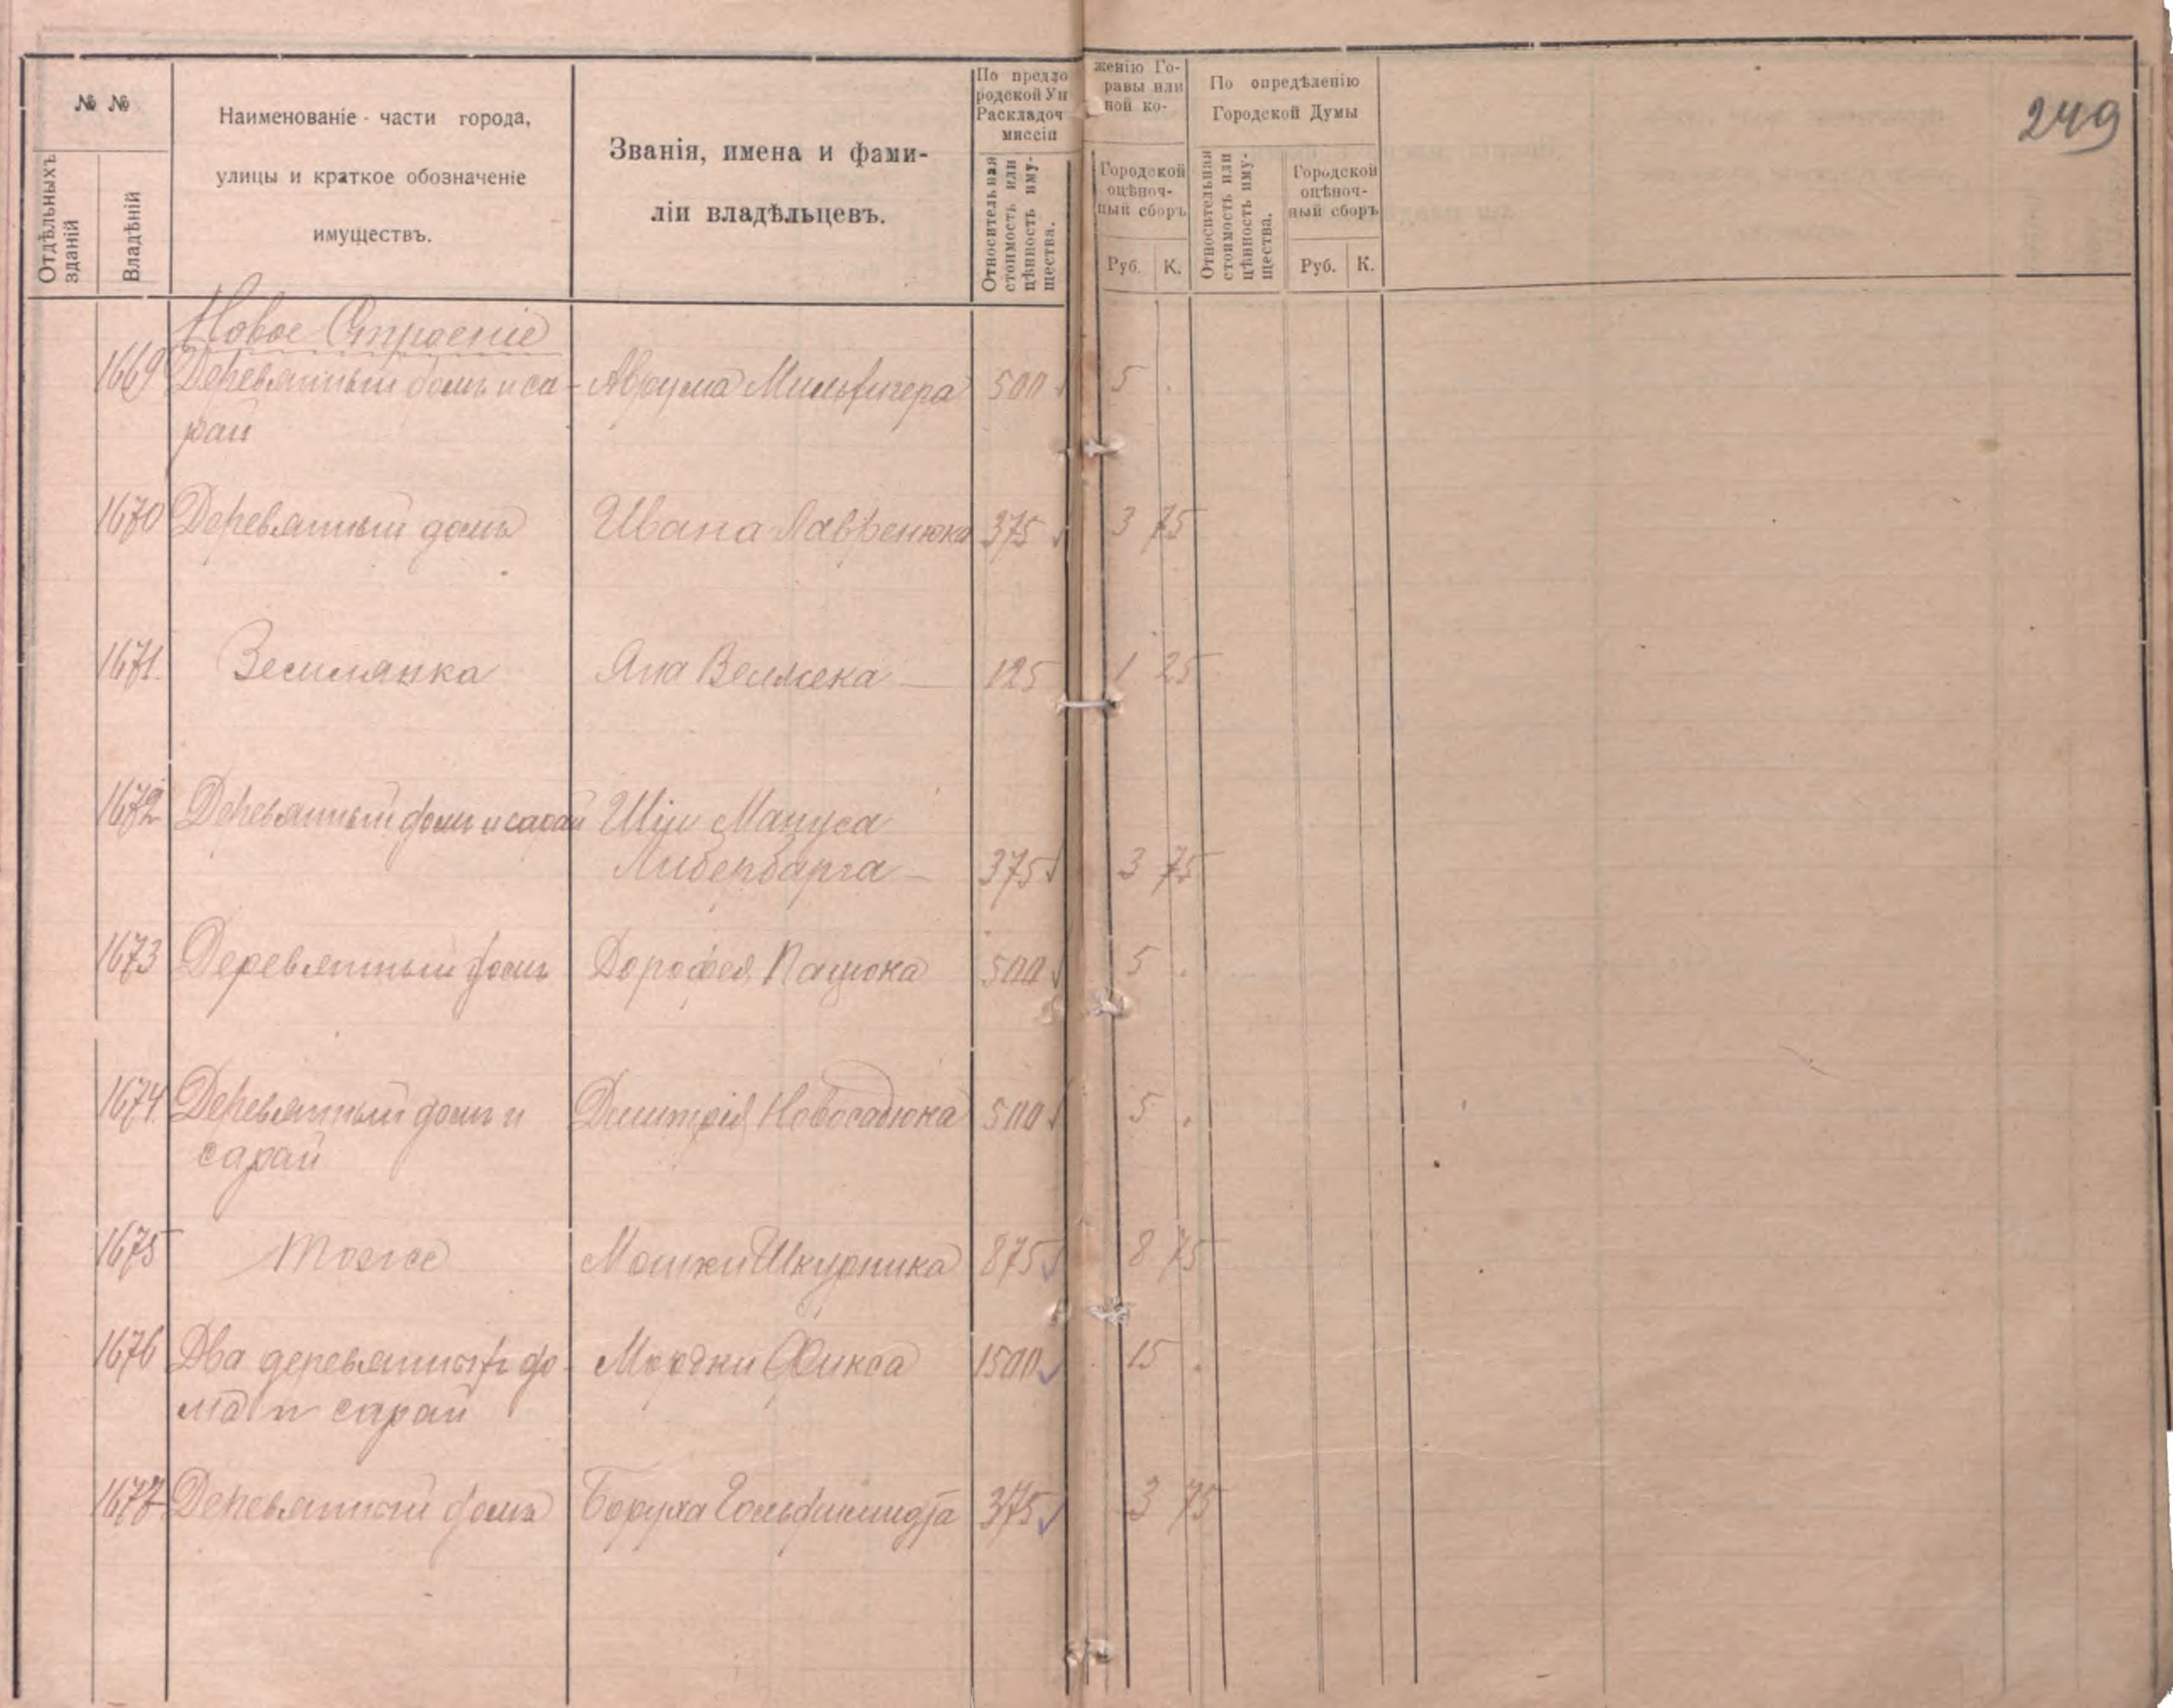 249
№ №
Отдѣльныхъ зданій
Владѣній
Наименованіе части города,
улицы и краткое обозначеніе
имуществъ.
Званія, имена и фами-
ліи владѣльцевъ.
По предло
родской Уп
Раскладоч
миссіи
женію Го-
равы или
ной ко-
Относительная
стоимость или
цѣнность иму-
щества.
Городской
оцѣноч-
ный сборъ
Руб. К.
По опредѣленію
Городской Думы
Относительная
стоимость или
цѣнность иму-
щества.
Городской
оцѣноч-
ный сборъ
Руб. К.
Новое Строеніе
1669 Деревянный домъ и са- Аврума 500 5 .
рай
1670 Деревянный домъ Ивана Лавренюка 375 3 75
1671 Землянка Яна 125 1 25
1672 Деревянный домъ и сарай Шіи Мануса
Либербарга 375 3 75
1673 Деревянный домъ Дорофея Пацюка 500 5 .
1674 Деревянный домъ и Дмитрія Новосадюка 500 5 .
сарай
1675 Тоже Мошки Шкурника 875 8 75
1676 Два деревянныхъ до- Мордки Фикса 1500 15 .
ма и сарай
1677 Деревянный домъ Боруха Гольдшмидта 375 3 75